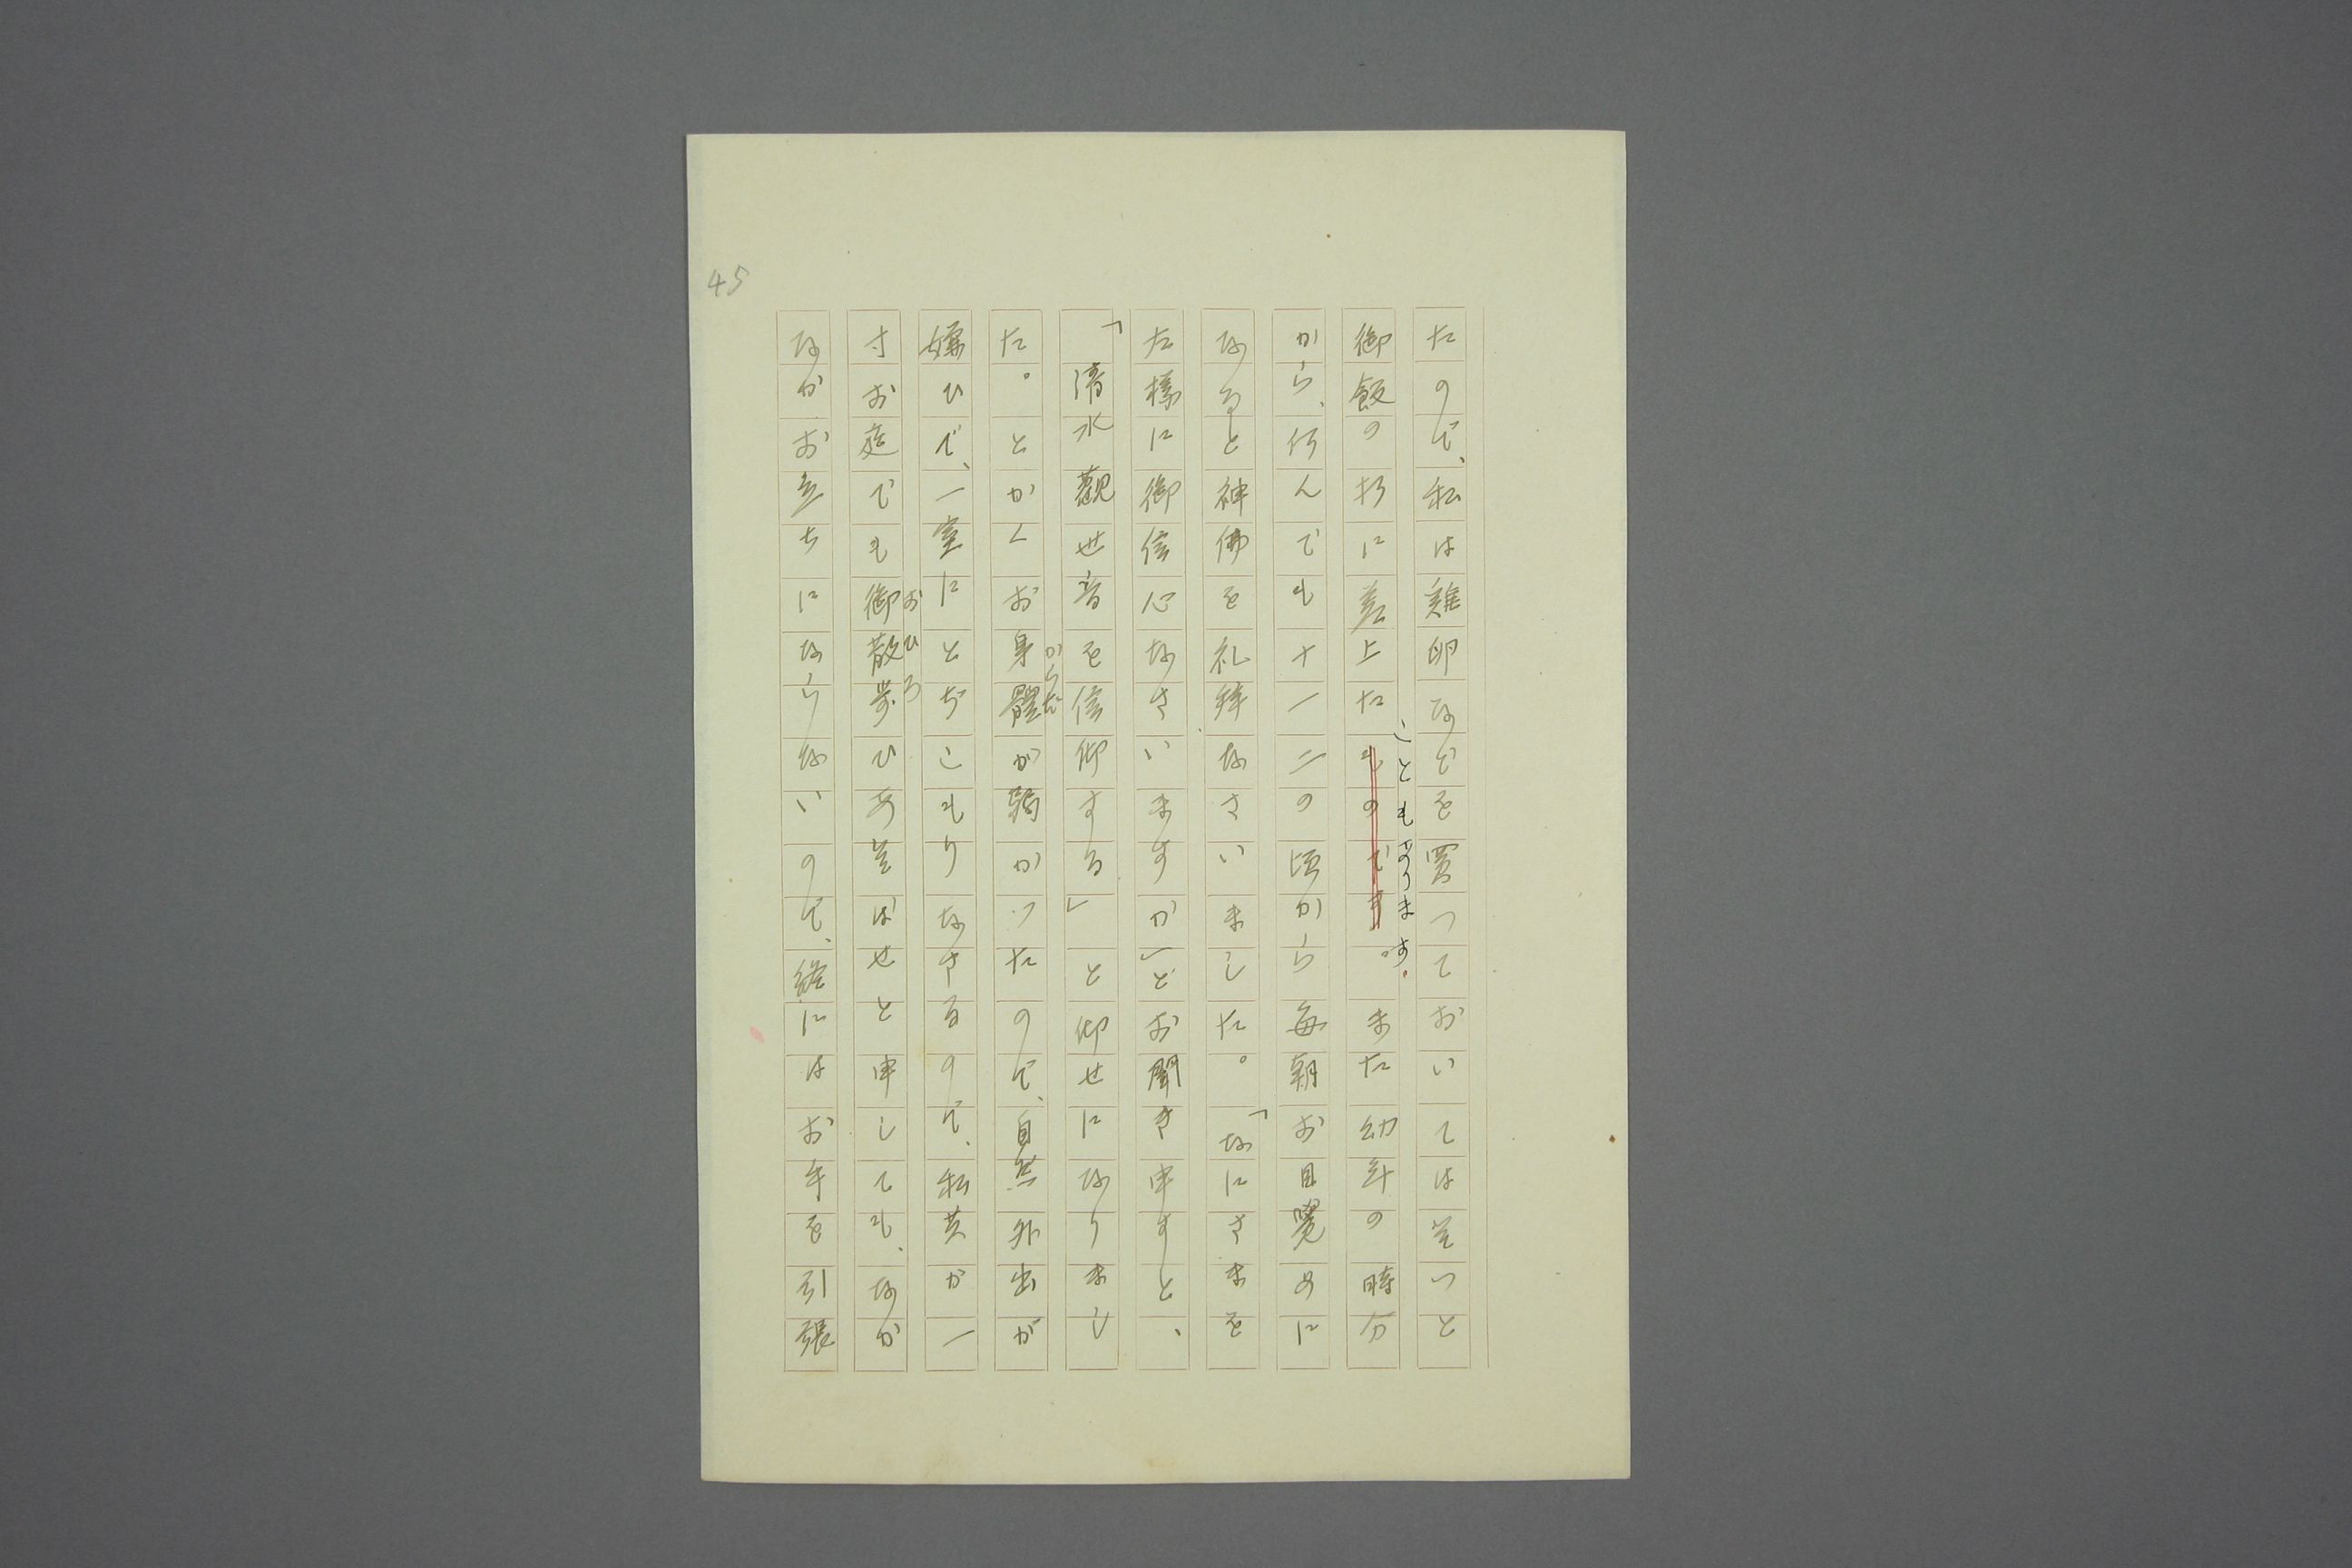 45
たので、私は雞卵などを買つておいてはそつと
御飯の折に差上たものです。また幼年の時分
こともあります。
から、何んでも十一二の頃から毎朝お目覺めに
なると神佛を礼拜なさいました。「なにさまを
左樣に御信心なさいますか」とお聞き申すと、
「清水觀世音を信仰する」と仰せになりまし
た。とかくお身體が弱かつたので、自然外出が
からだ
嫌ひで、一室にとぢこもりなさるので、私共が一
寸お庭でも御散歩ひあそばせと申しても、なか
おひろ
なかお立ちにならないので、終にはお手を引張